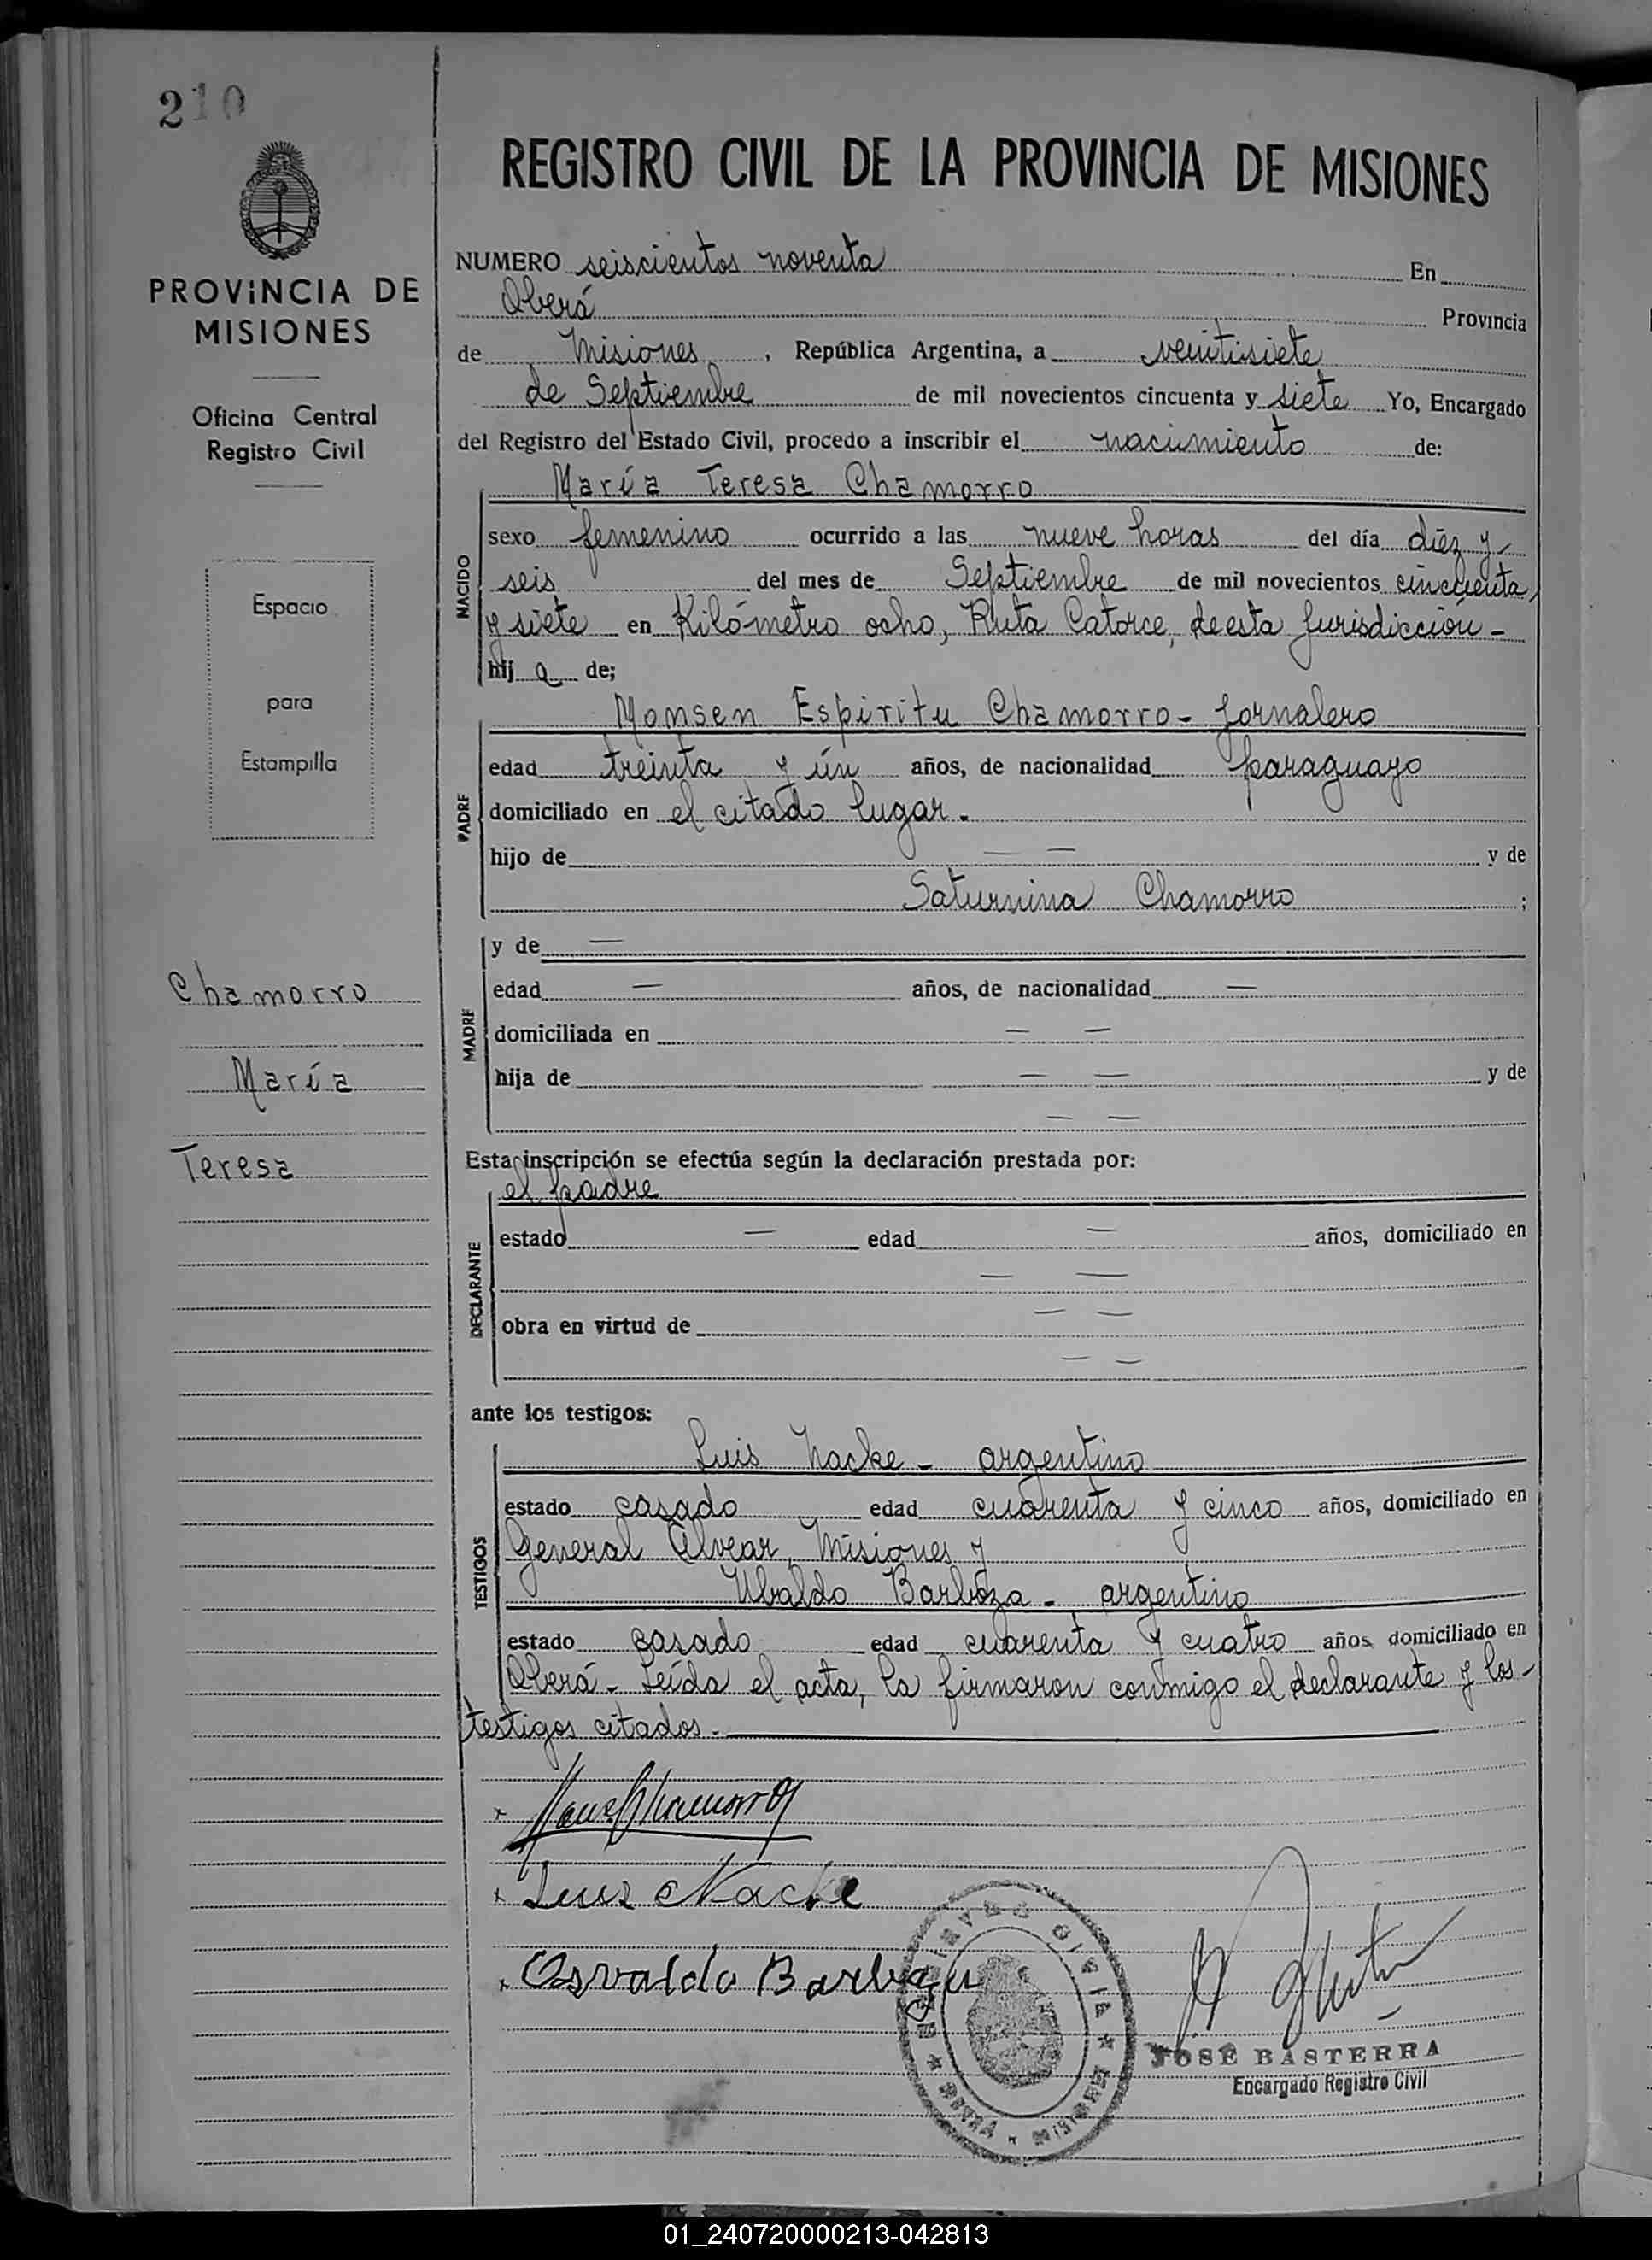 210
PROVINCIA DE
MISIONES
Oficina Central
Registro Civil
Espacio
para
Estampilla
Chamorro
María
Teresa
REGISTRO CIVIL DE LA PROVINCIA DE MISIONES
NUMERO seiscientos noventa En
Oberá Provincia
de Misiones, República Argentina, a veintisiete
de Septiembre de mil novecientos cincuenta y siete Yo, Encargado
del Registro del Estado Civil, procedo a inscribir el nacimiento de:
María Teresa Chamorro
NACIDO
sexo femenino ocurrido a las nueve horas del día diéz y
seis del mes de Septiembre de mil novecientos cincuenta
y siete en Kilómetro ocho, Ruta Catorce, de esta Jurisdicción -
hij a de;
PADRE
Monsen Espíritu Chamorro - Jornalero
edad treinta y ún años, de nacionalidad paraguayo
domiciliado en el citado lugar.
hijo de — — y de
Saturnina Chamorro ;
MADRE
y de —
edad — años, de nacionalidad —
domiciliada en — —
hija de — — y de
— —
Esta inscripción se efectúa según la declaración prestada por:
el padre
DECLARANTE
estado — edad — años, domiciliado en
— —
obra en virtud de — —
— —
ante los testigos:
TESTIGOS
Luis Nacke - argentino
estado casado edad cuarenta y cinco años, domiciliado en
General Alvear, Misiones y
Ubaldo Barboza - argentino
estado casado edad cuarenta y cuatro años domiciliado en
Oberá - Leída el acta, la firmaron conmigo el declarante y los -
testigos citados. -
x Chamorro
x Luis Nacke
x Osvaldo Barboza
JOSÉ BASTERRA
Encargado Registro Civil
01_240720000213-042813